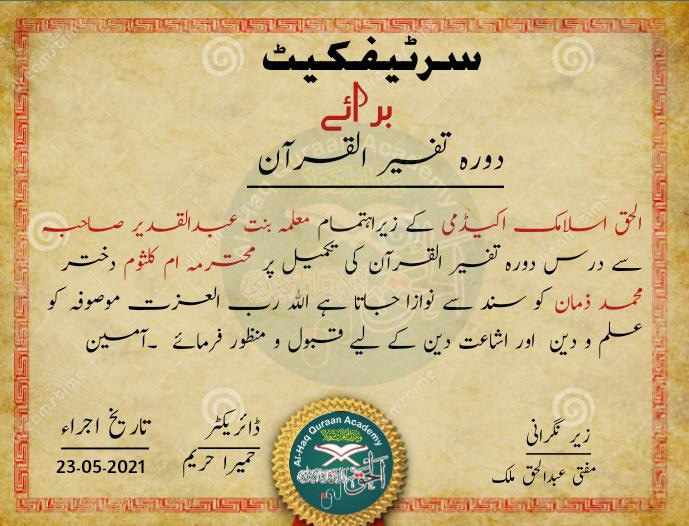 سرٹیفکیٹ
برائے
دورہ تفسیر القرآن
الحق اسلامک اکیڈمی کے زیراہتمام معلمہ بنت عبدالقدیر صاحبہ
سے درس دورہ تفسیر القرآن کی تکمیل پر محترمہ ام کلثوم دختر
محمد ذمان کو سند سے نوازا جاتا ہے اللہ رب العزت موصوفہ کو
علم و دین اور اشاعت دین کے لیے قبول و منظور فرمائے ۔آمین
زیر نگرانی
مفتی عبدالحق ملک
ڈائریکٹر
حمیرا حریم
تاریخ اجراء
23-05-2021
Al-Haq Quraan Academy
الحق
dreamstime